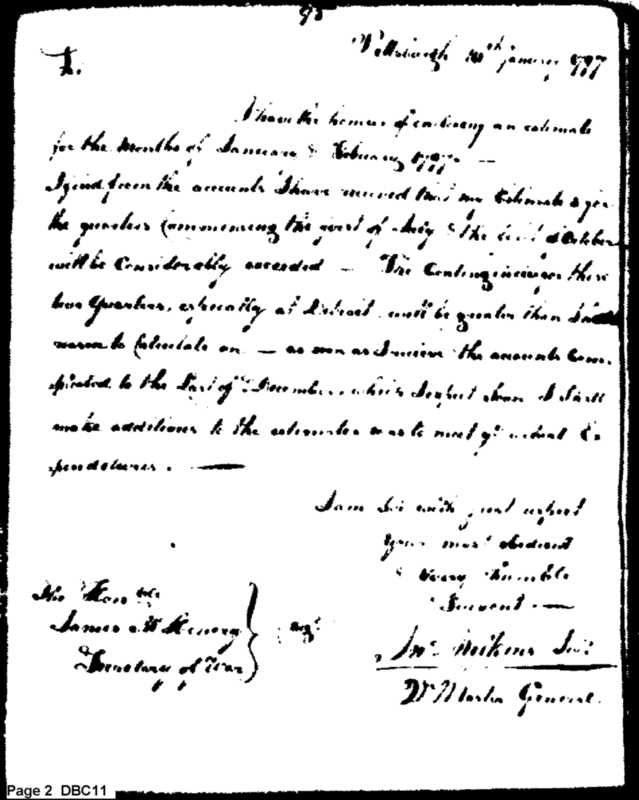 95
Pittsburgh 20th January 1797
Sir.
I have the honour of enclosing an estimate
for the Months of January & February 1797 —
I find from the accounts I have received that my Estimates for
the quarters Commencing the first of July & the first of October
will be Considerably exceeded — The Contingencies for these
two Quarters, especially at Detroit will be greater than I had
reason to Calculate on — as soon as I receive the accounts Com-
pleated to the Last of December, which I expect soon I shall
make additions to the estimates so as to meet ye actual Ex
penditures. —
I am Sir with great respect
Your most Obedient
& Very Humble
Servent —
The Honble
James McHenry
Secretary of War
Jno Wilkins Junr
Qr Master General.
Page 2 DBC11